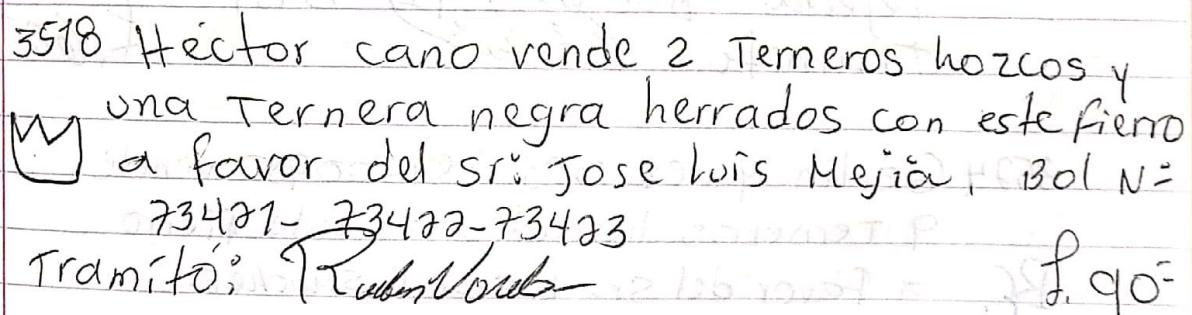 3518 Héctor cano vende 2 Terneros hozcos y
una Ternera negra herrados con este fierro
a favor del sr: Jose Luis Mejia, Bol N=
73421- 73422-73423
Tramitó: Ruben
L. 90=